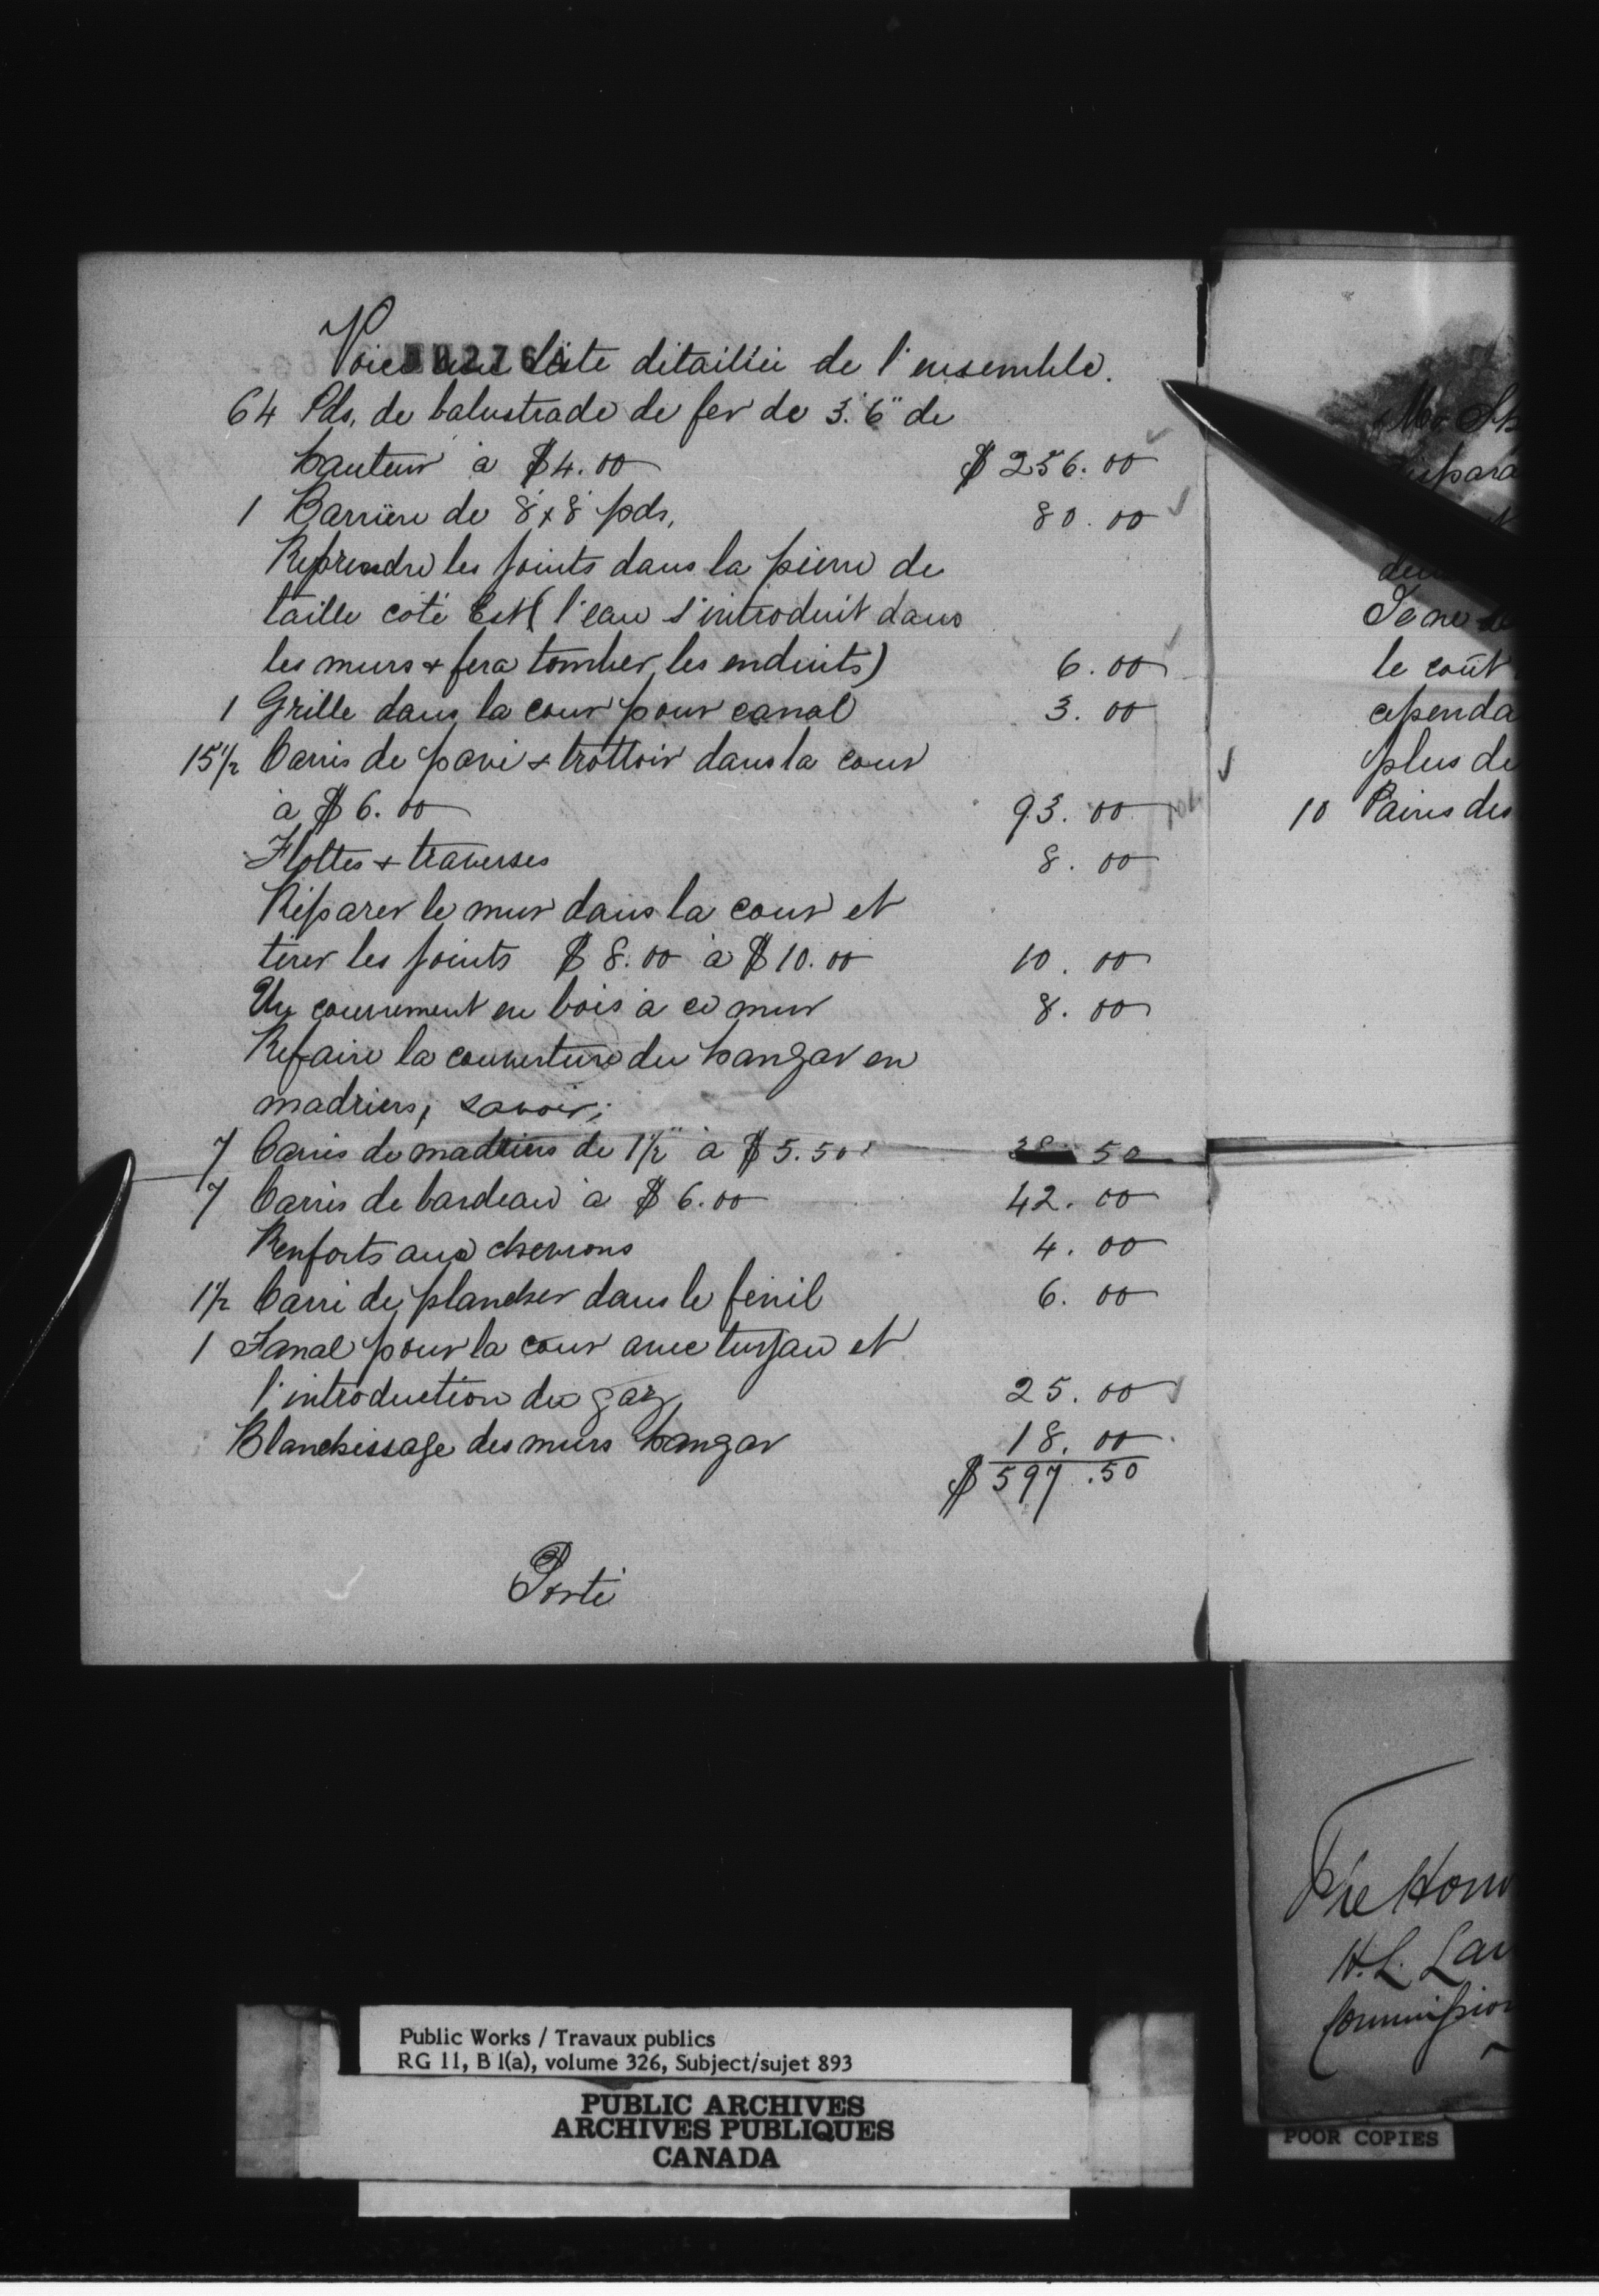 Voici une liste détaillée de l'ensemble.
64 Pds, de balustrade de fer de 3'.6" de
hauteur à $4.00 $256.00
1 Barrière de 8' x 8' pds, 80.00
Reprendre les joints dans la pierre de
taille côté Est (l'eau s'introduit dans
les murs & fera tomber les enduits) 6.00
1 Grille dans la cour pour canal 3.00
15 1/2 Carrés de pavé & trottoir dans la cour
à $6.00 93.00
Flottes & traverses 8.00
Réparer le mur dans la cour et
tirer les joints $8.00 à $10.00 10.00
Un couvrement en bois à ce mur 8.00
Refaire la couverture du hangar en
madriers, savoir;
7 Carrés de madriers de 1 1/2" à $5.50 38.50
7 Carrés de bardeau à $6.00 42.00
Renforts aux chevrons 4.00
1 1/2 Carré de plancher dans le fénil 6.00
1 Fanal pour la cour avec tuyau et
l'introduction du gaz 25.00
Blanchissage des murs hangar 18.00
$597.50
Porté
Je ne
le coût
cependa
plus de
10 Paires des
The Hon
H.L. Lan
Commission
Public Works / Travaux publics
RG 11, B 1(a), volume 326, Subject/sujet 893
PUBLIC ARCHIVES
ARCHIVES PUBLIQUES
CANADA
POOR COPIES